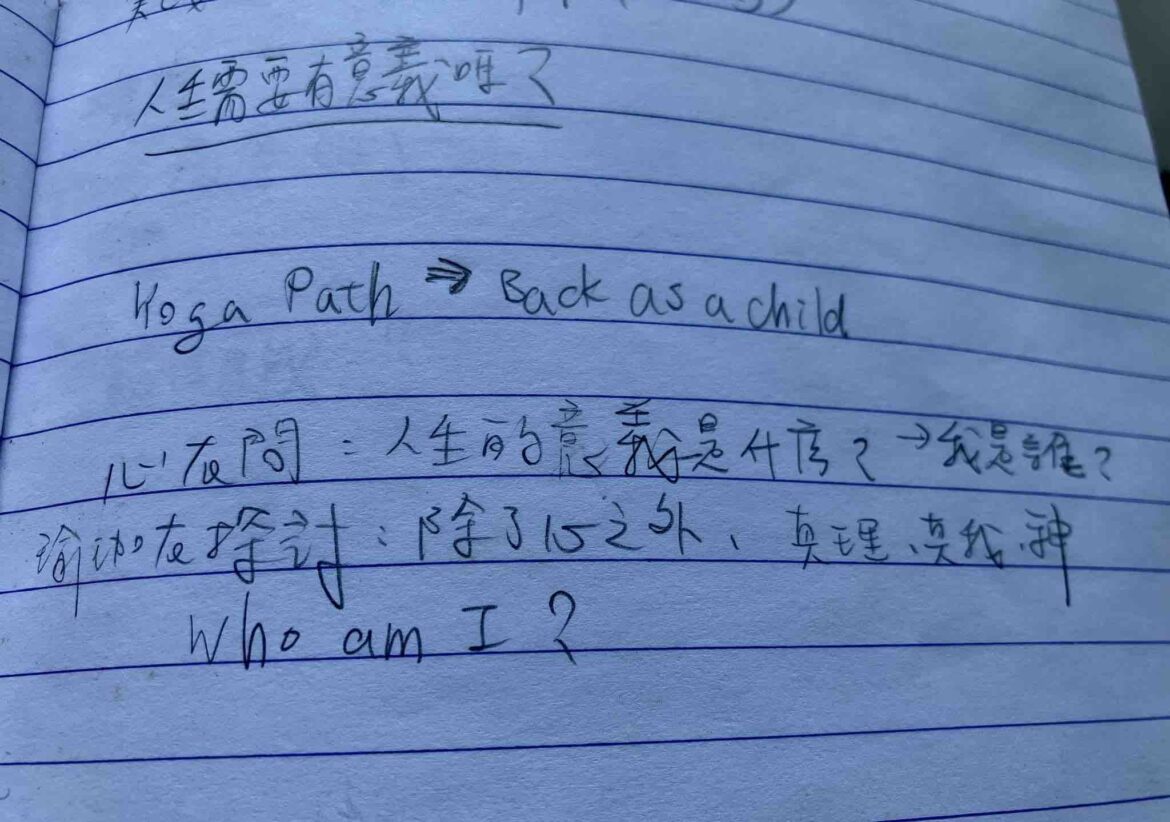 人生需要有意義嗎?
Yoga Path ⇒ Back as a child
心在問：人生的意義是什麼? →我是誰?
瑜珈在探討：除了心之外、真理、真我、神
Who am I ?